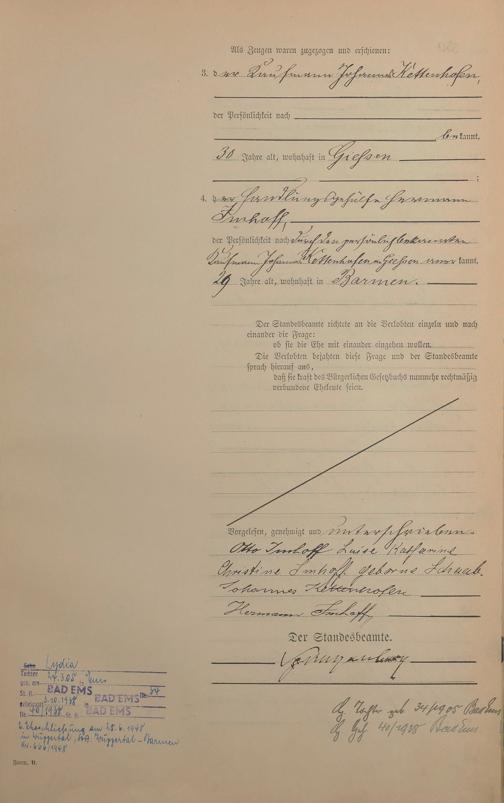 Als Zeugen waren zugezogen und erschienen:
3. der Kaufmann Johannes Kettenhofen,
der Persönlichkeit nach
bekannt,
30 Jahre alt, wohnhaft in Giessen
;
4. der Handlungsgehülfe Hermann
Imhoff,
der Persönlichkeit nach durch den persönlich bekannten
Kaufmann Johannes Kettenhofen in Giessen anerkannt,
29 Jahre alt, wohnhaft in Barmen.
Der Standesbeamte richtete an die Verlobten einzeln und nach
einander die Frage:
ob sie die Ehe mit einander eingehen wollen.
Die Verlobten bejahten diese Frage und der Standesbeamte
sprach hierauf aus,
daß sie kraft des Bürgerlichen Gesetzbuchs nunmehr rechtmäßig
verbundene Eheleute seien.
Vorgelesen, genehmigt und unterschrieben.
Otto Imhoff Luise Katharine
Christine Imhoff geborne Schaub.
Johannes Kettenhofen
Hermann Imhoff
Der Standesbeamte.
Lydia
Tochter
24.3.05 Ems
St. A. BAD EMS Nr. 34
3.10.1938 BAD EMS
Nr. 40/1938 BAD EMS
2. Eheschließung am 28.6.1948
in Wuppertal, StA. Wuppertal-Barmen
Nr. 606/1948
Tochter geb 34/1905 Bad Ems
40/1938 Bad Ems
Form. B.